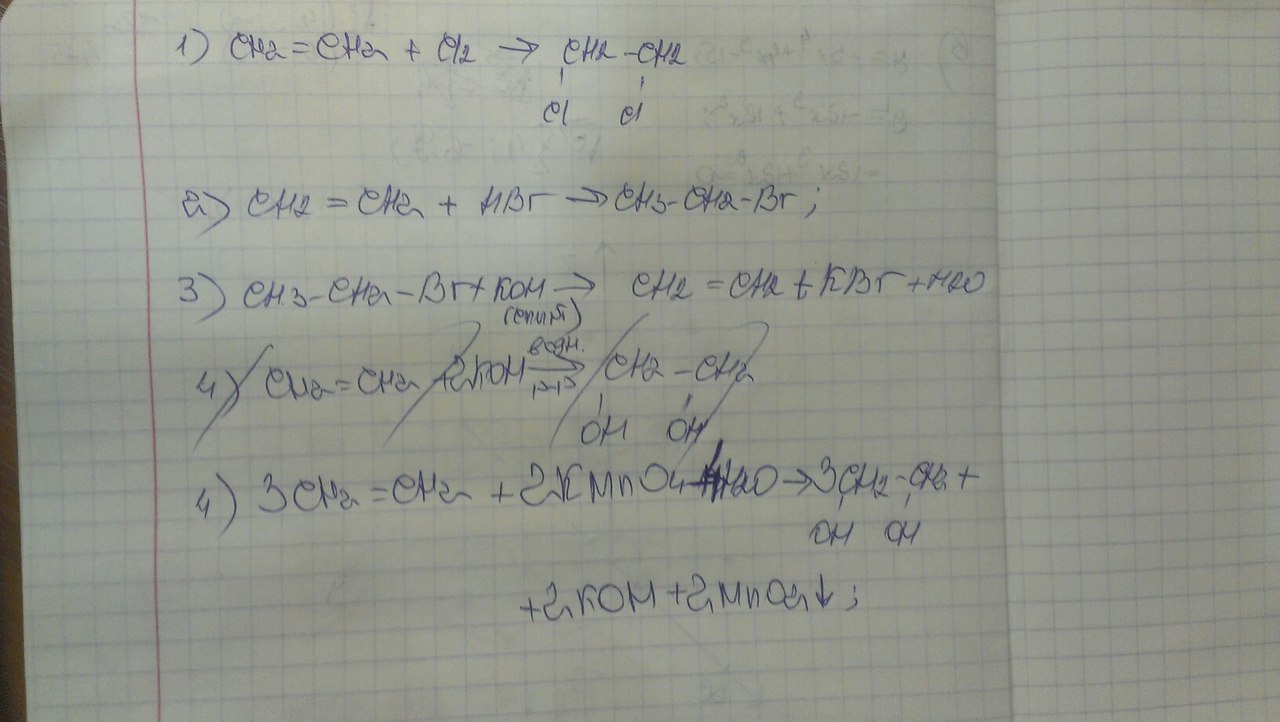 1) CH2=CH2 + Cl2 → CH2-CH2
Cl Cl
2) CH2 = CH2 + HBr → CH3-CH2-Br ;
3) CH3-CH2-Br+KOH → CH2=CH2+KBr+H2O
(спирт)
водн.
4) CH2=CH2 +2KOH → CH2-CH2
р-р
OH OH
4) 3CH2=CH2 + 2KMnO4+4H2O → 3CH2-CH2+
OH OH
+2KOH+2MnO2↓ ;